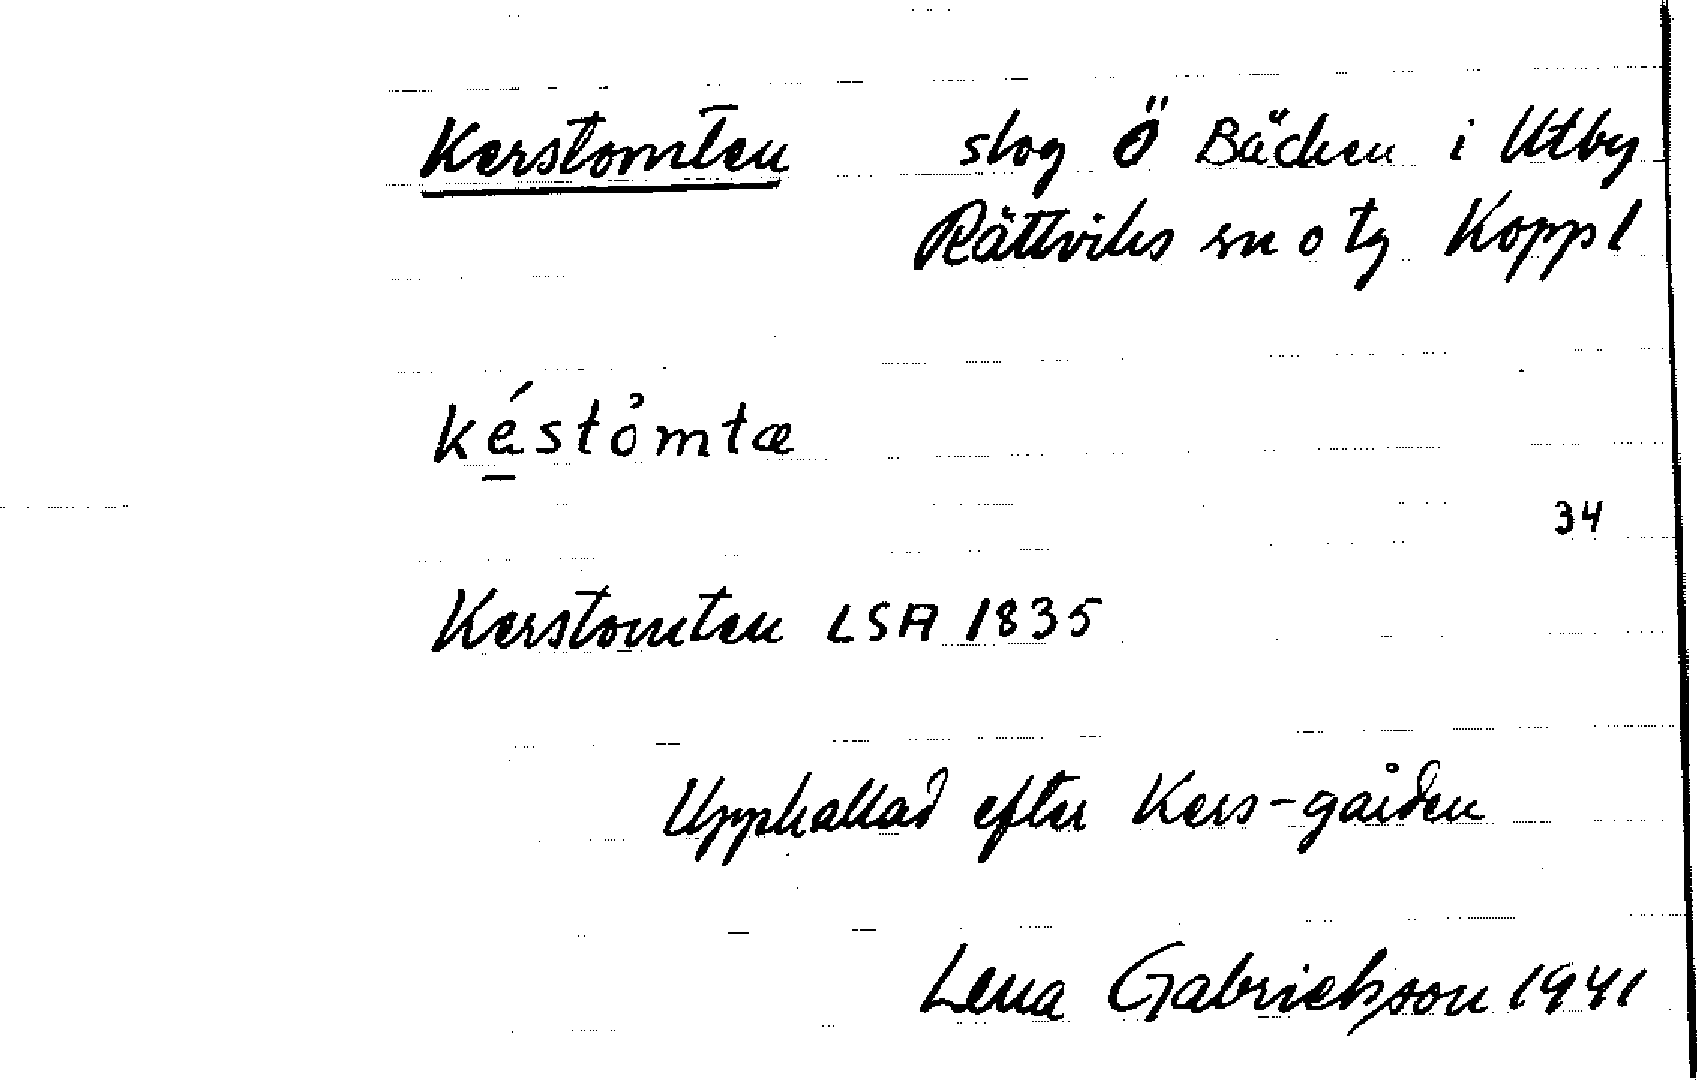 Kerstomten slog Ö Bäcken i Utby
Rättviks sn o tg Koppl
kéståmtæ
34
Kerstomten LSA 1835
Upphallad efter Kers-gården
Lena Gabrielsson 1941